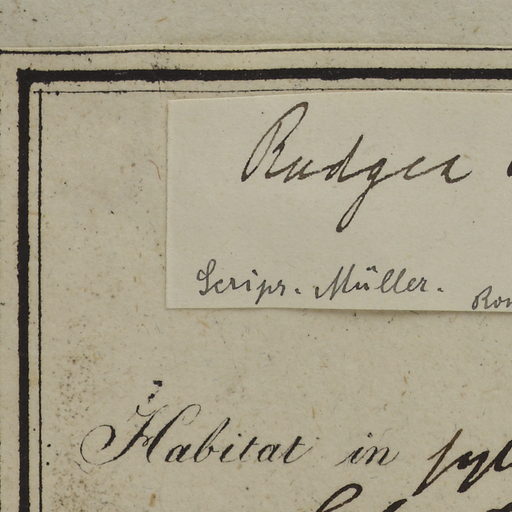 Rudgea
Scrips. Müller.
Habitat in